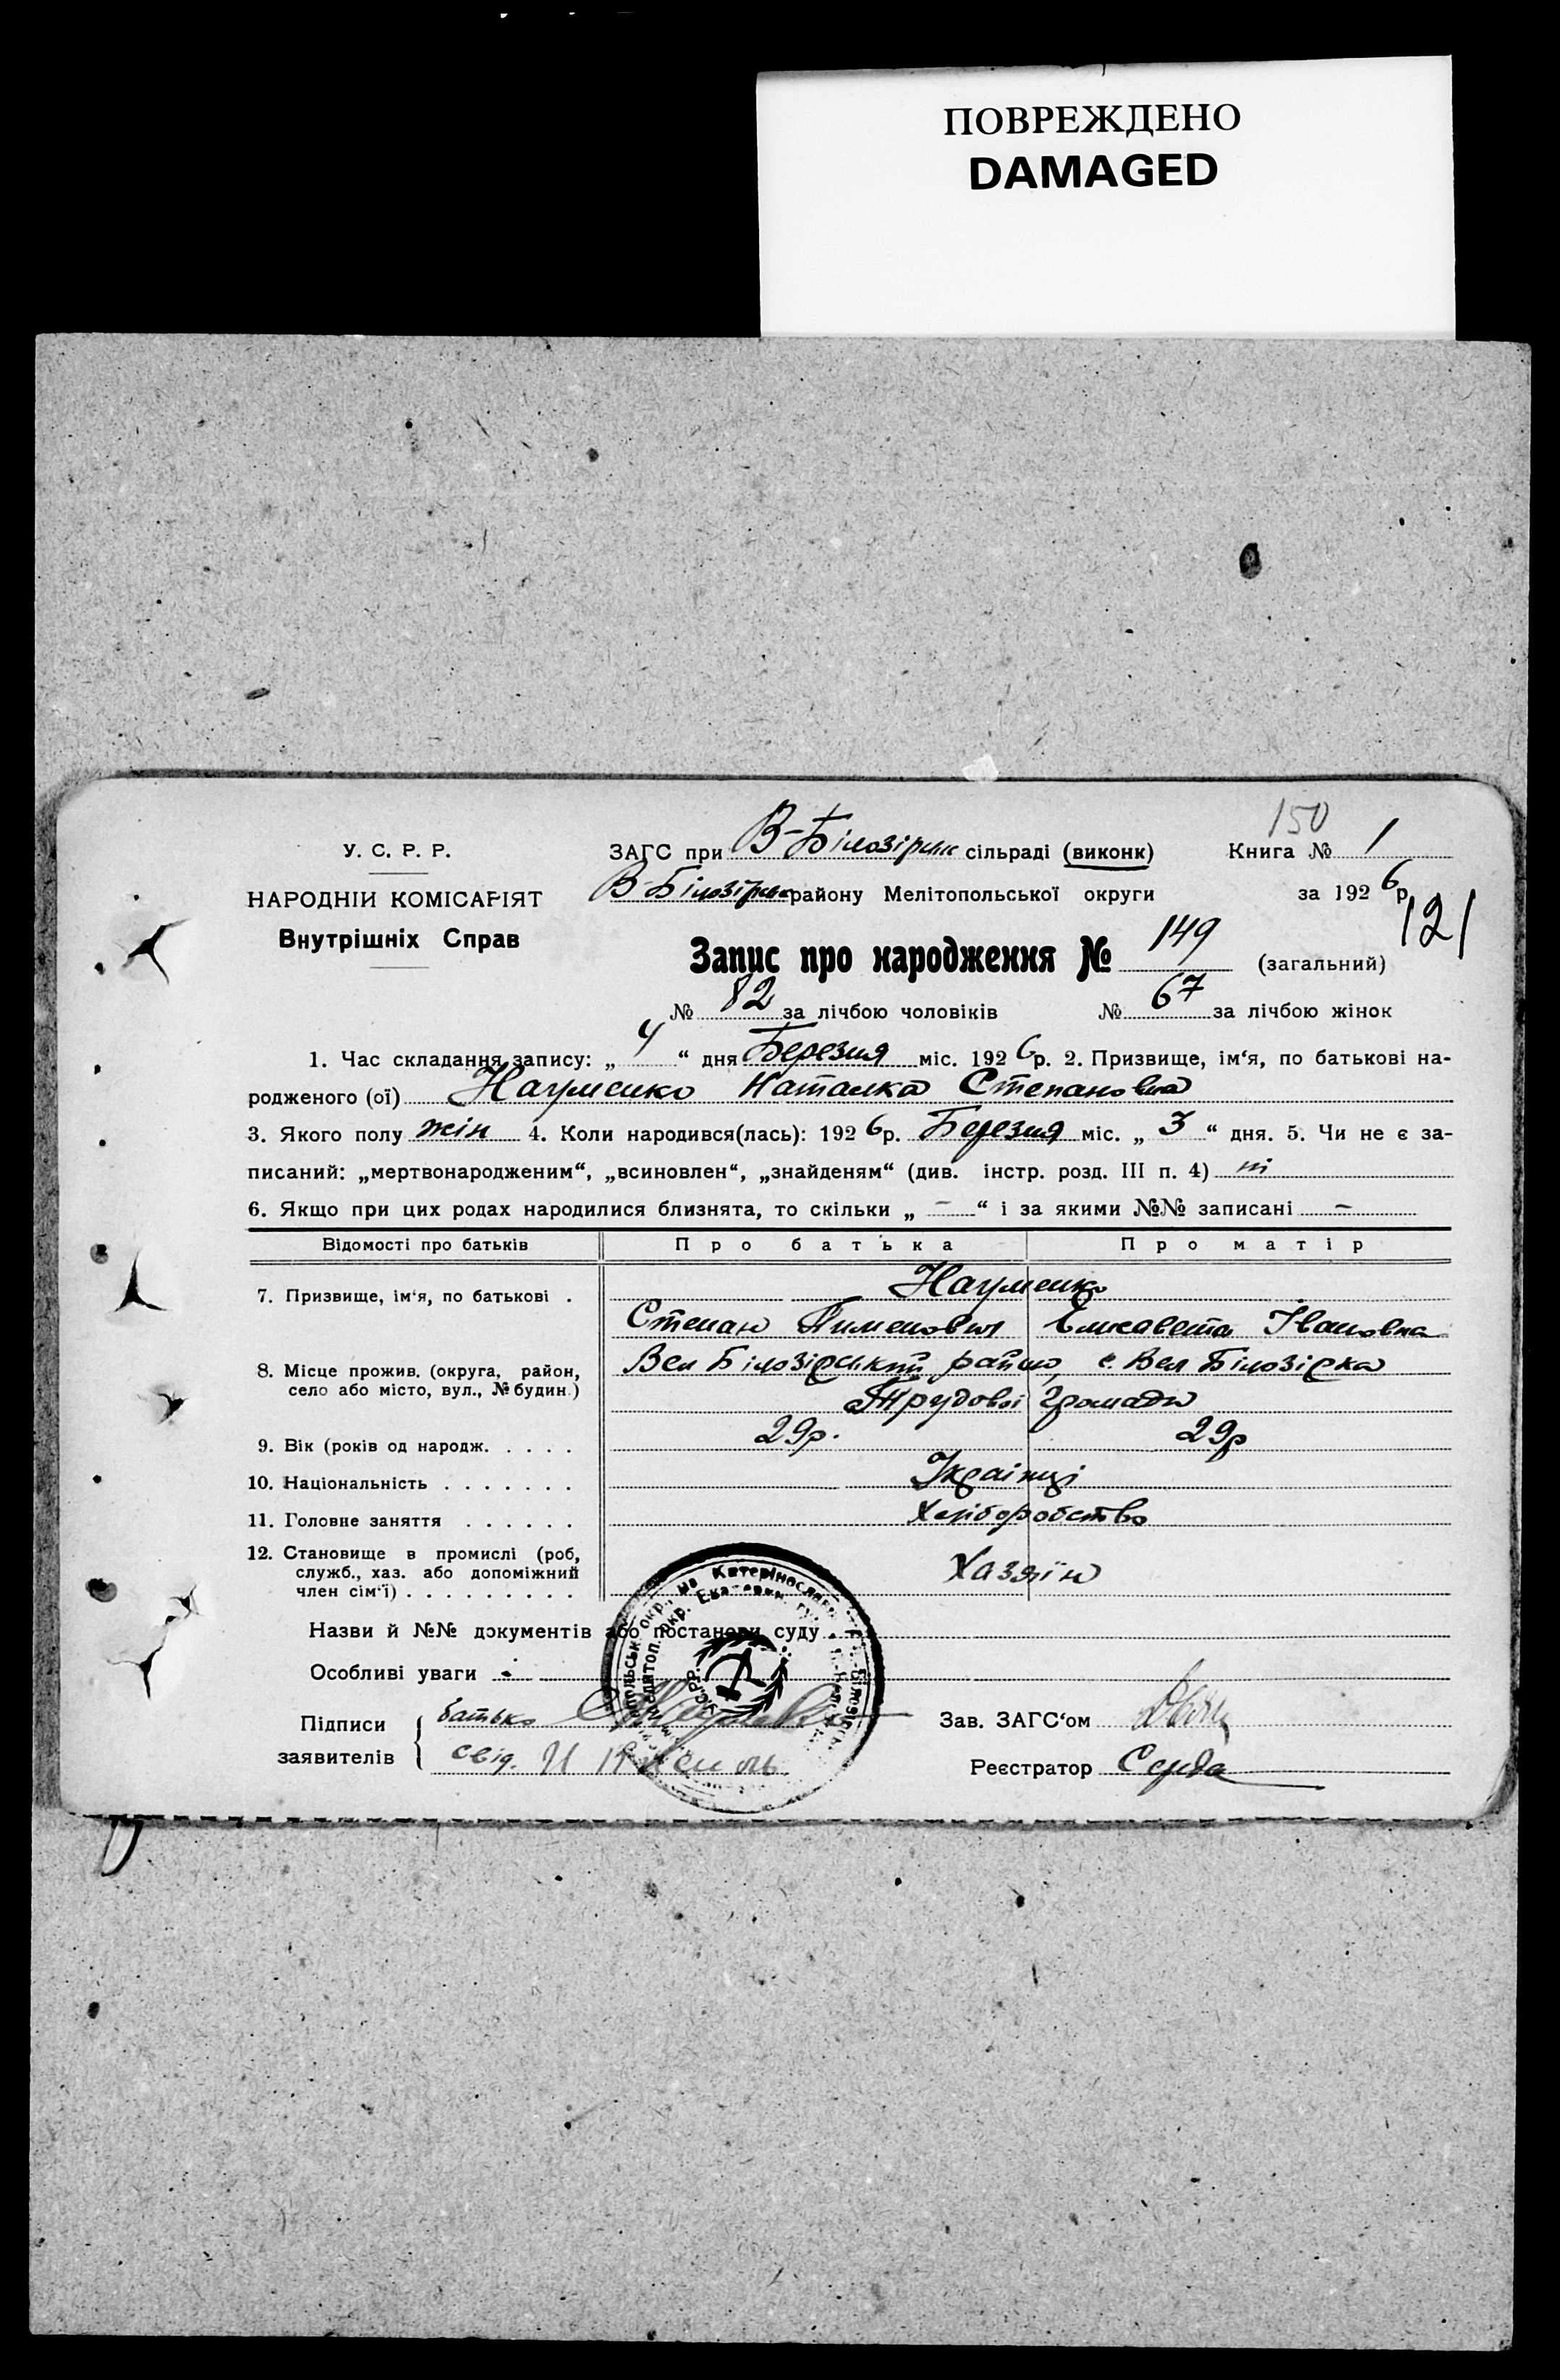 ПОВРЕЖДЕНО
DAMAGED
150
У. С. Р. Р.
НАРОДНІИ КОМІСАРІЯТ
Внутрішніх Справ
ЗАГС при В-Білозірськ сільраді (виконк)
Книга № 1
В-Білозірськ району Мелітопольської округи
за 1926 р.
121
Запис про народження № 149 (загальний)
№ 82 за лічбою чоловіків № 67 за лічбою жінок
1. Час складання запису: „ 4 “ дня Березня міс. 1926 р. 2. Призвище, ім‘я, по батькові на-
родженого (ої) Науменко Наталка Степановна
3. Якого полу жін 4. Коли народився(лась): 1926 р. Березня міс. „ 3 “ дня. 5. Чи не є за-
писаний: „мертвонародженим“, „всиновлен“, „знайденям“ (див. інстр. розд. III п. 4) ні
6. Якщо при цих родах народилися близнята, то скільки „ – “ і за якими №№ записані –
Відомості про батьків Про батька Про матір
7. Призвище, ім‘я, по батькові . Науменко
Степан Пименович Елисавета Івановна
8. Місце прожив. (округа, район, село або місто, вул., № будин.)
Вел Білозірський район, с. Вел Білозірка
Трудової Громади
9. Вік (років од народж. . . . . 29р. 29р
10. Національність . . . . . . . Українці
11. Головне заняття . . . . . . Хліборобство
12. Становище в промислі (роб,
служб., хаз. або допоміжний
член сім‘ї) . . . . . . . . . Хазяїн
Назви й №№ документів або постанови суду
Особливі уваги -
Підписи
заявителів
батько
свід. И
Зав. ЗАГС‘ом
Реєстратор Середа